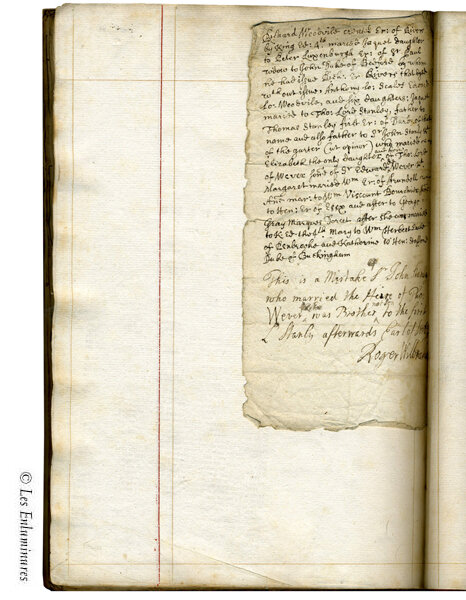 Richard Woodvile created Er: of River
by King Ed: 4th maried Jaquet daughter
to Peter Luxenburgh Er: of St Paul
widow to John Duke of Bedford by whom
he had issue Rich: Er: Rivers that dyed
without issue: Anthony lo: Scales
lo: Woodvile, and six daughters:
maried to Tho: Lord Stanley, father to
Thomas Stanley first Er: of that
name and also father to Sr John Stanley
of the garter (ut opinor) who maried
Elizabeth the only daughter Tho: Lord
of Wever sonne of Sr Edward Wever
Margaret maried Wm Er: of Arundell
Ann mar: to Wm Viscount Bourchier
to Hen: Er of Essex and after to George
Gray Marques
to K Ed: the 4th Mary to Wm Herbert Earle
of Penbroke and Katherine to Hen: Stafford
Duke of Buckingham
This is a Mistake Sr John
who married the Heire of Tho
Wever was Brother to the first
Ld Stanly afterwards Earle of
Roger
© Les Enluminures